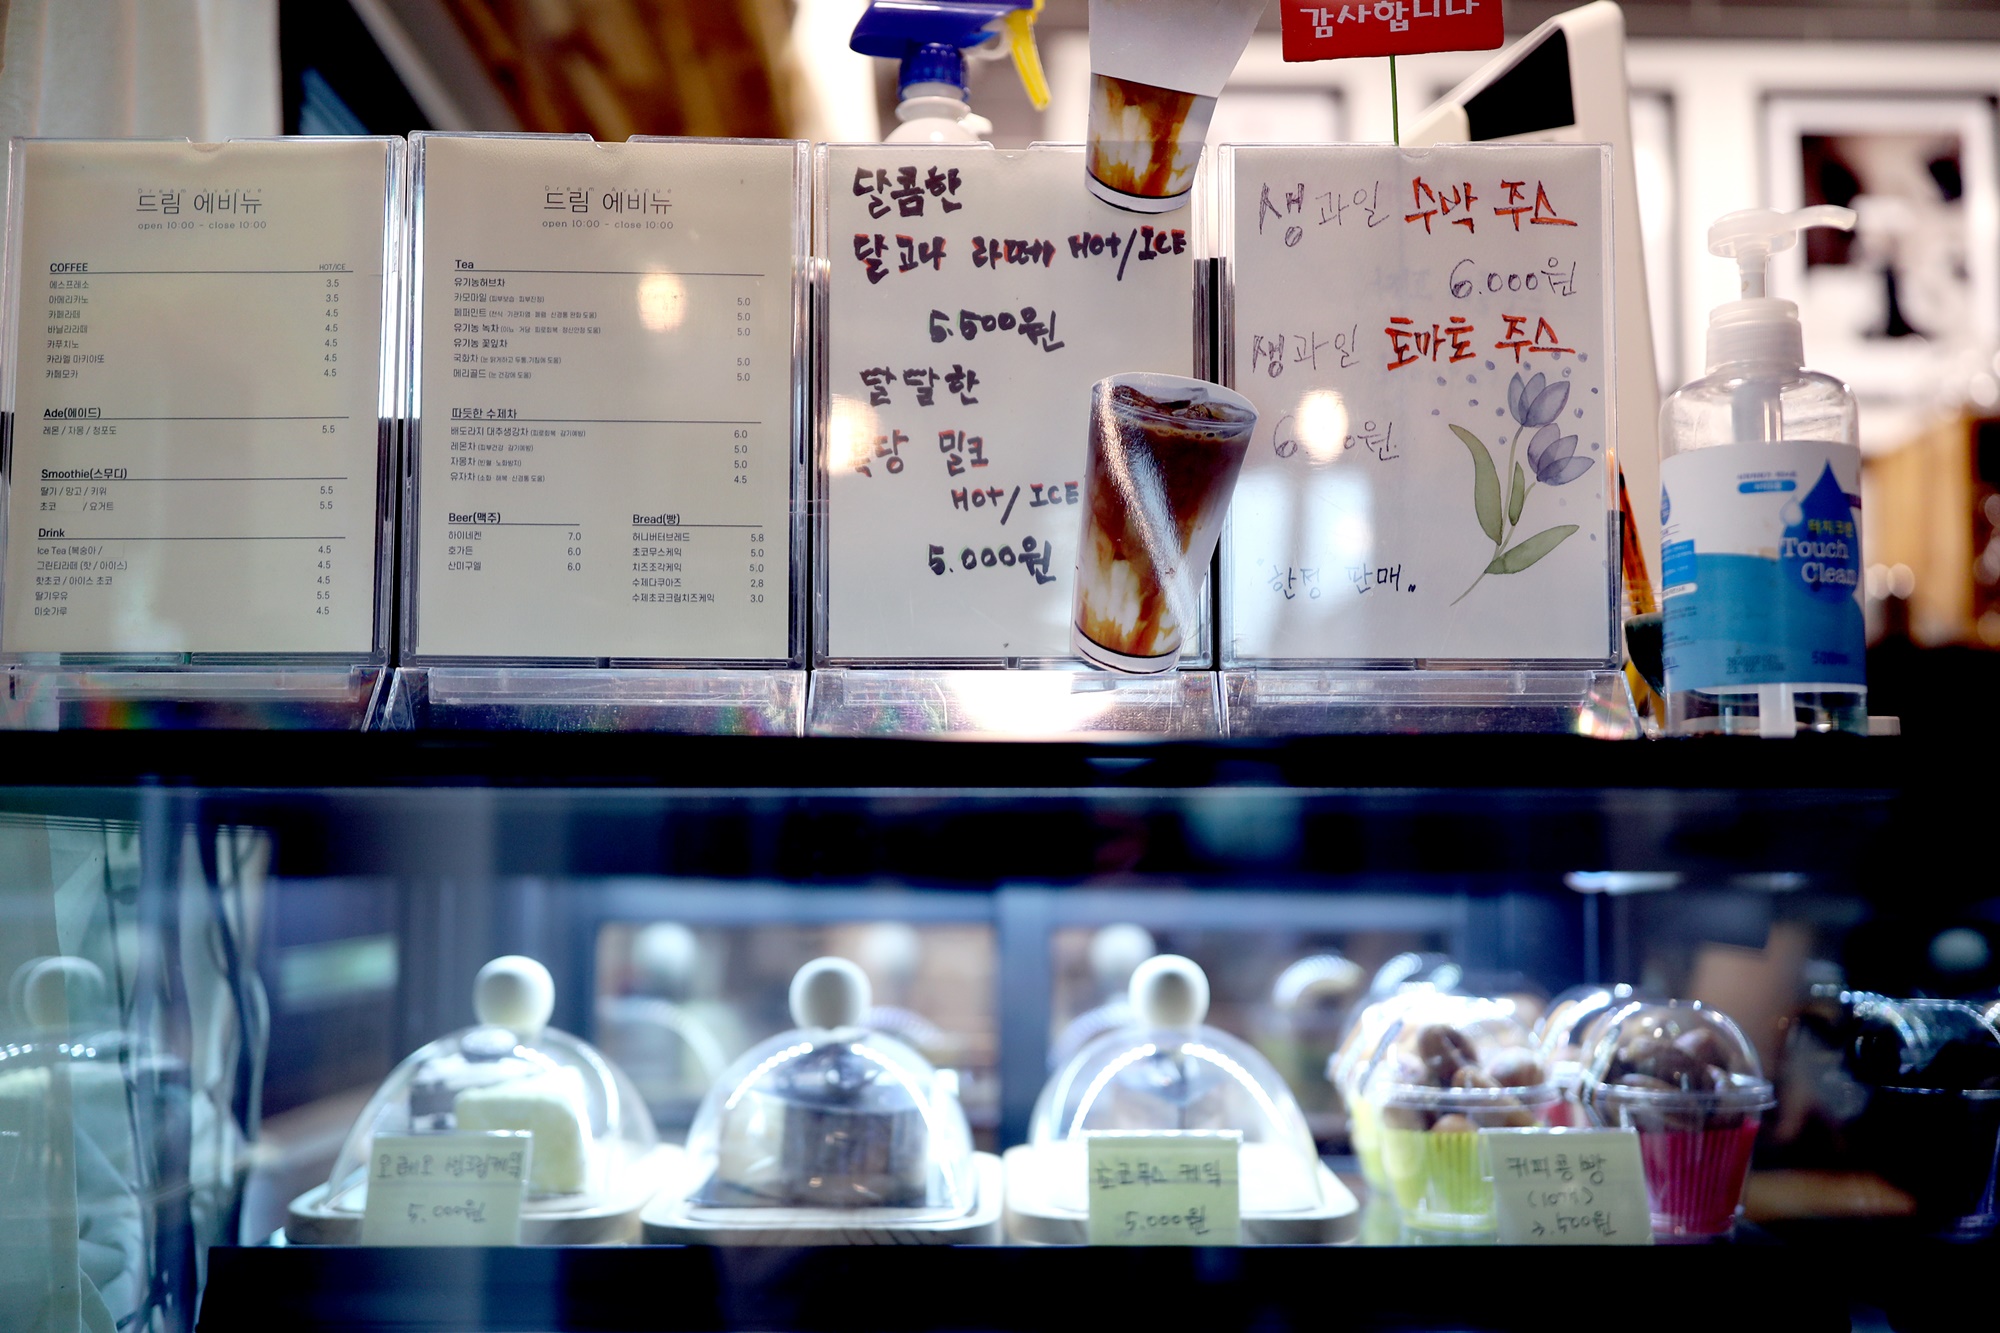 감사합니다
Dream Avenue
드림 에비뉴
open 10:00 - close 10:00
COFFEE HOT/ICE
에스프레소 3.5
아메리카노 3.5
카페라떼 4.5
바닐라라떼 4.5
카푸치노 4.5
카라멜 마키아또 4.5
카페모카 4.5
Ade(에이드)
레몬 / 자몽 / 청포도 5.5
Smoothie(스무디)
딸기 / 망고 / 키위 5.5
초코 / 요거트 5.5
Drink
Ice Tea (복숭아 / 4.5
그린티라떼 (핫 / 아이스) 4.5
핫초코 / 아이스 초코 4.5
딸기우유 5.5
미숫가루 4.5
Dream Avenue
드림 에비뉴
open 10:00 - close 10:00
Tea
유기농허브차
카모마일 (피부보습 · 피부진정) 5.0
페퍼민트 (천식 · 기관지염 · 폐렴 · 신경통 완화 도움) 5.0
유기농 녹차 5.0
유기농 꽃잎차
국화차 5.0
메리골드 (눈 건강에 도움) 5.0
따듯한 수제차
배도라지 대추생강차 (피로회복 · 감기예방) 6.0
레몬차 (피부건강 · 감기예방) 5.0
자몽차 (빈혈 · 노화방지) 5.0
유자차 4.5
Beer(맥주)
하이네켄 7.0
호가든 6.0
산미구엘 6.0
Bread(빵)
허니버터브레드 5.8
초코무스케익 5.0
치즈조각케익 5.0
수제다쿠아즈 2.8
수제초코크림치즈케익 3.0
달콤한
달고나 라떼 HOT/ICE
5.500원
달달한
당 밀크
HOT/ICE
5.000원
생과일 수박 주스
6.000원
생과일 토마토 주스
한정 판매..
터치크린
Touch
Clean
500ml
오레오 생크림케익
5.000원
초코무스 케익
5.000원
커피콩빵
(10개)